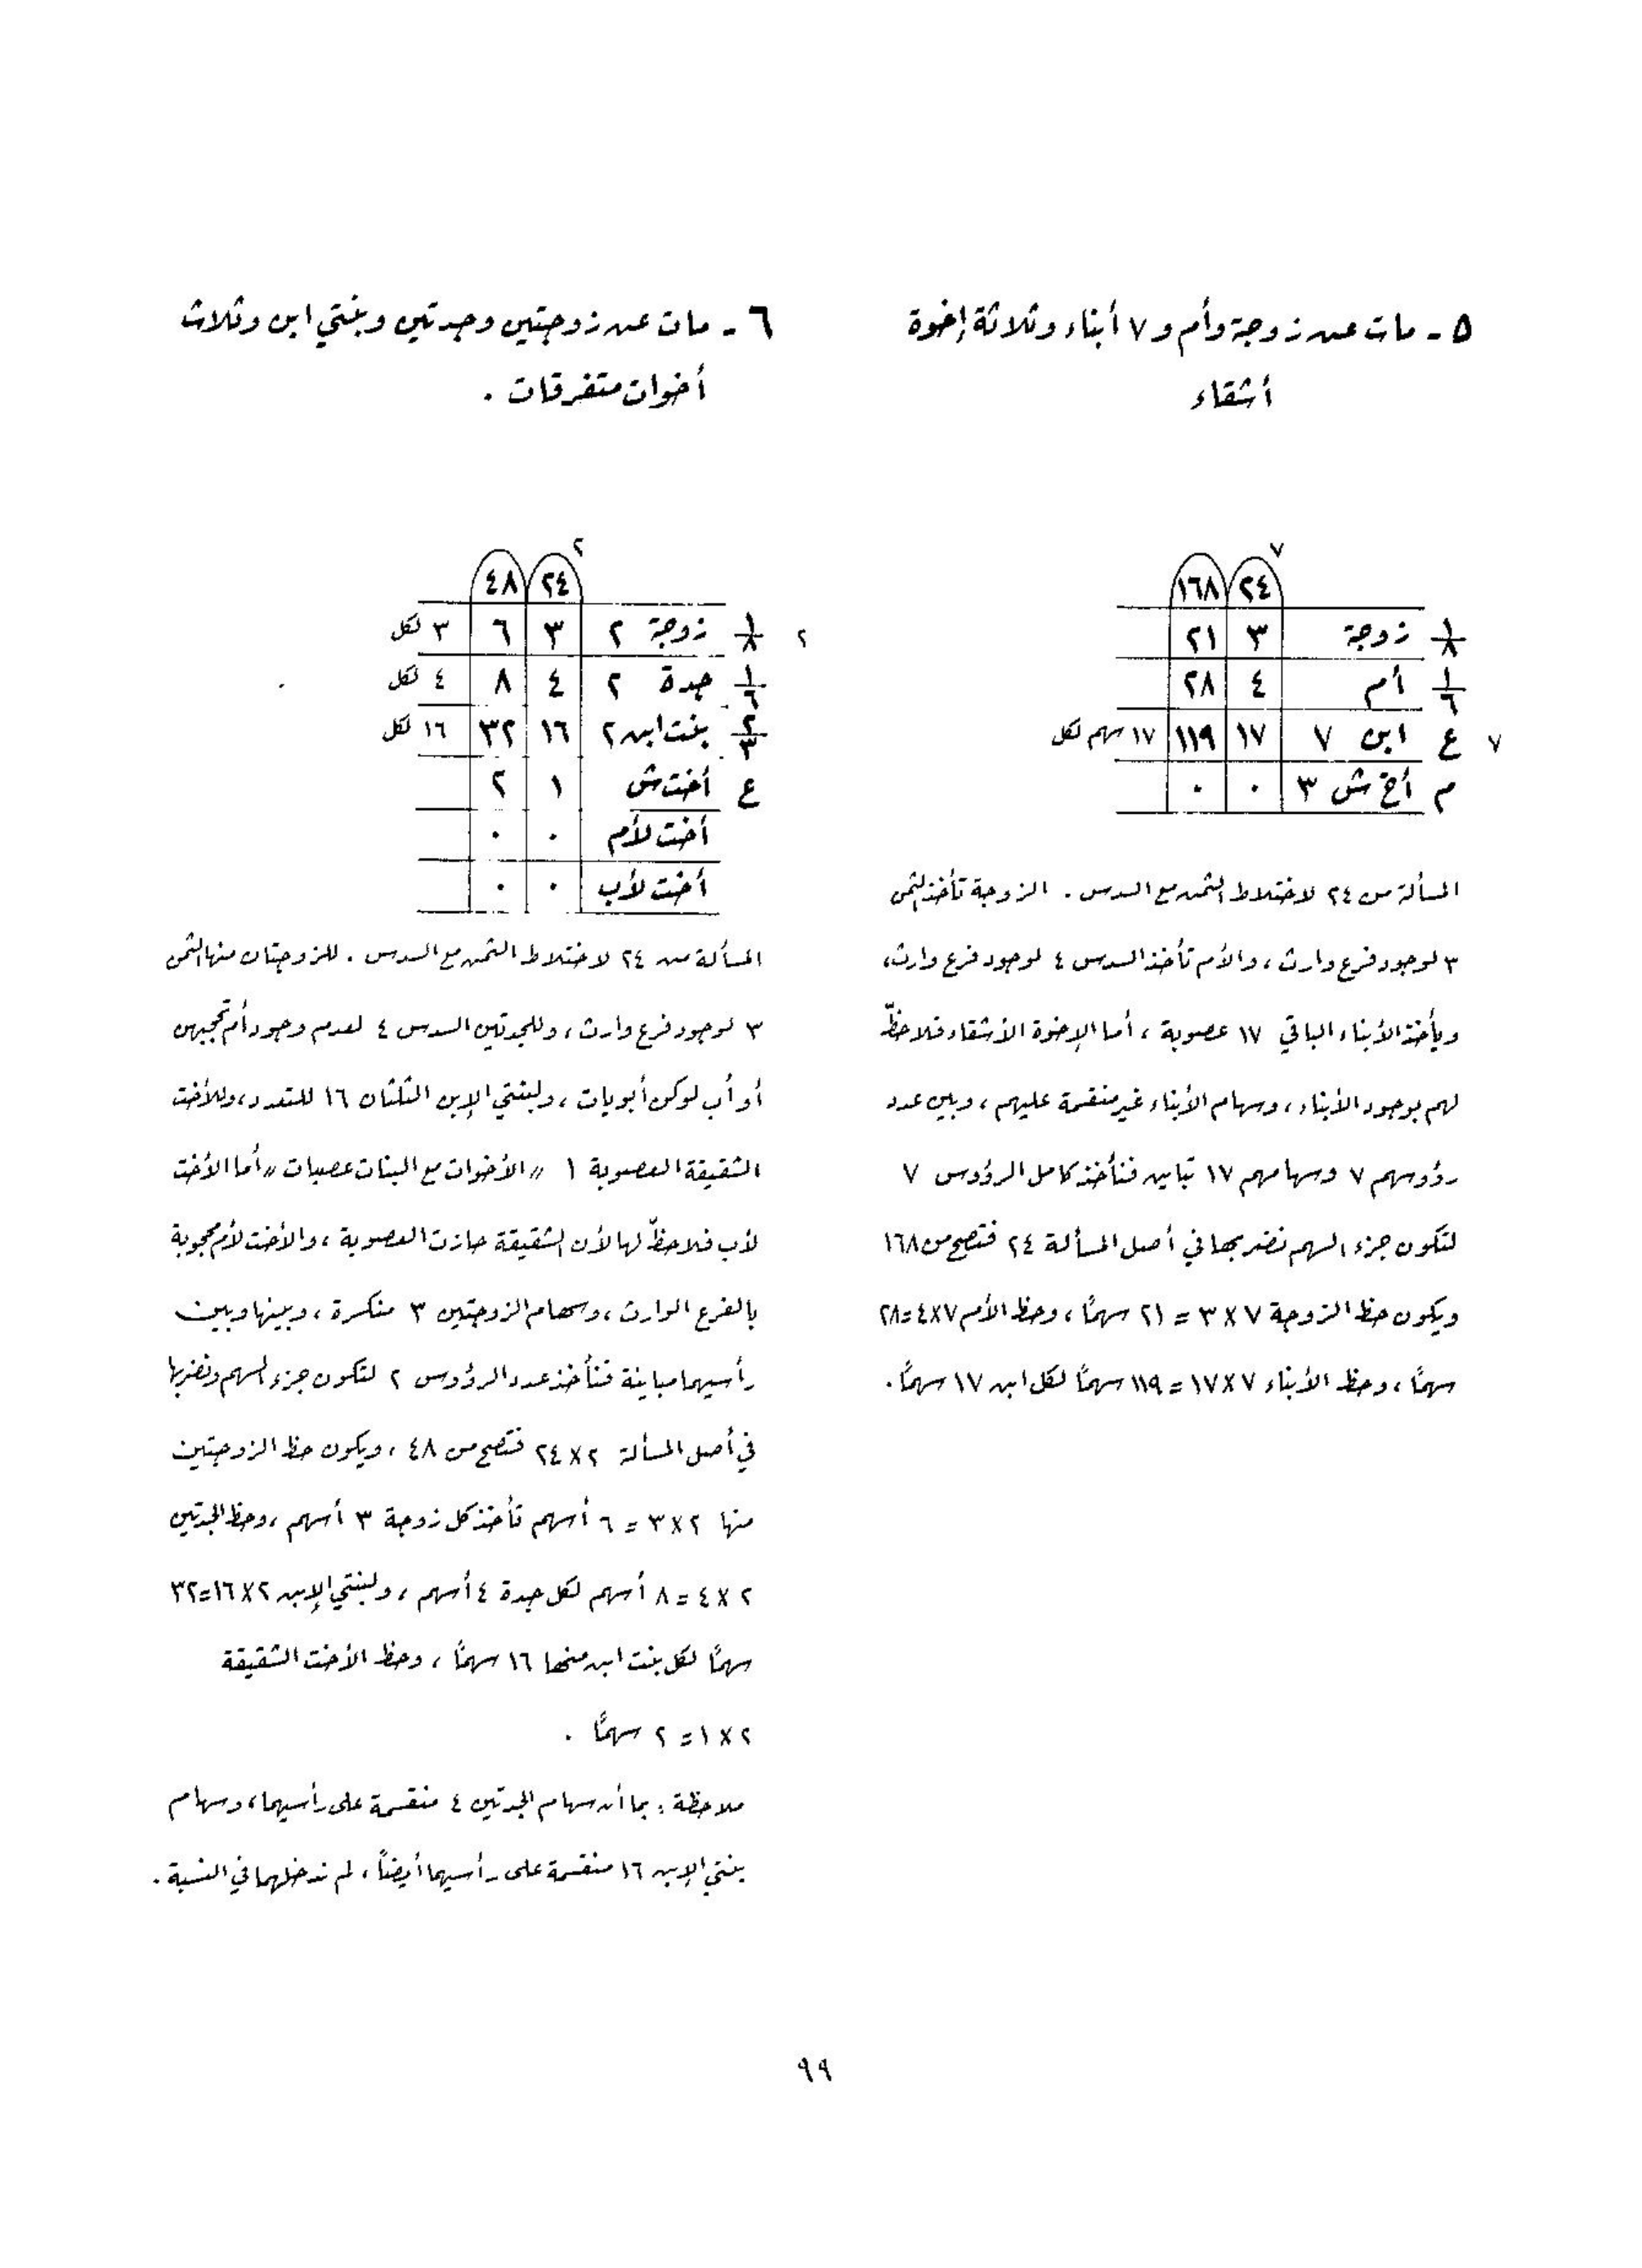 ٥ - مات عن زوجة وأم و ٧ أبناء وثلاثة إخوة
أشقاء
٧
٢٤ ١٦٨
١/٨ زوجة ٣ ٢١
١/٦ أم ٤ ٢٨
٧ ع ابن ٧ ١٧ ١١٩ ١٧ سهم لكل
م أخ ش ٣ ٠ ٠
المسألة من ٢٤ لاختلاط الثمن مع السدس . الزوجة تأخذ الثمن
٣ لوجود فرع وارث ، والأم تأخذ السدس ٤ لوجود فرع وارث،
ويأخذ الأبناء الباقي ١٧ عصوبة ، أما الإخوة الأشقاء فلا حظّ
لهم بوجود الأبناء ، وسهام الأبناء غير منقسمة عليهم ، وبين عدد
رؤوسهم ٧ وسهامهم ١٧ تباين فنأخذ كامل الرؤوس ٧
لتكون جزء السهم نضربها في أصل المسألة ٢٤ فتصح من ١٦٨
ويكون حظ الزوجة ٧ × ٣ = ٢١ سهمًا ، وحظ الأم ٧×٤=٢٨
سهمًا ، وحظ الأبناء ٧×١٧ = ١١٩ سهمًا لكل ابن ١٧ سهمًا .
٦ - مات عن زوجتين وجدتين وبنتي ابن وثلاث
أخوات متفرقات .
٢
٢٤ ٤٨
٢ ١/٨ زوجة ٢ ٣ ٦ ٣ لكل
١/٦ جدة ٢ ٤ ٨ ٤ لكل
٢/٣ بنت ابن ٢ ١٦ ٣٢ ١٦ لكل
ع أخت ش ١ ٢
أخت لأم ٠ ٠
أخت لأب ٠ ٠
المسألة من ٢٤ لاختلاط الثمن مع السدس . للزوجتان منها الثمن
٣ لوجود فرع وارث ، وللجدتين السدس ٤ لعدم وجود أم تحجبهن
أو أب لو كن أبويات ، ولبنتي الإبن الثلثان ١٦ للتعدد ، وللأخت
الشقيقة العصوبة ١ " الأخوات مع البنات عصبات " أما الأخت
لأب فلا حظّ لها لأن الشقيقة حازت العصوبة ، والأخت لأم محجوبة
بالفرع الوارث ، وسهام الزوجتين ٣ منكسرة ، وبينها وبين
رأسيهما مباينة فنأخذ عدد الرؤوس ٢ لتكون جزء السهم ونضربها
في أصل المسألة ٢ × ٢٤ فتصح من ٤٨ ، ويكون حظ الزوجتين
منها ٢×٣ = ٦ أسهم تأخذ كل زوجة ٣ أسهم ، وحظ الجدتين
٢ × ٤ = ٨ أسهم لكل جدة ٤ أسهم ، ولبنتي الإبن ٢×١٦=٣٢
سهمًا لكل بنت ابن منها ١٦ سهمًا ، وحظ الأخت الشقيقة
٢ × ١ = ٢ سهمًا .
ملاحظة : بما أن سهام الجدتين ٤ منقسمة على رأسيهما ، وسهام
بنتي الإبن ١٦ منقسمة على رأسيهما أيضًا ، لم ندخلهما في النسبة .
٩٩